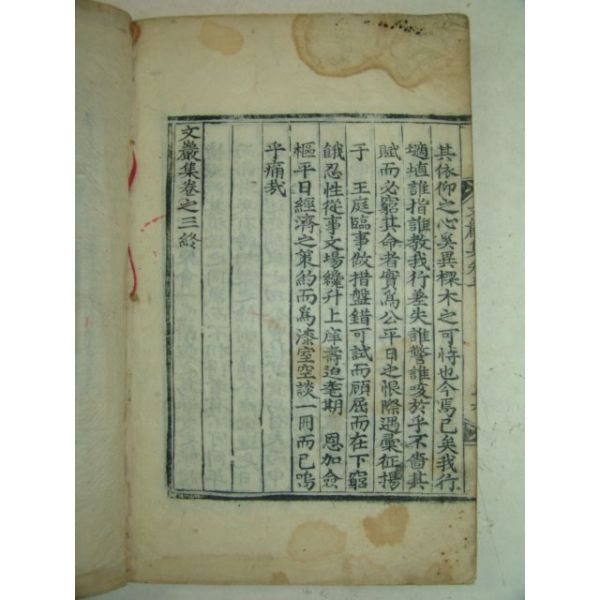 其依仰之心奚異樑木之可恃也今焉已矣我行
擿埴誰指誰教我行差失誰警誰咳於乎不啻其
賦而必窮其命者實爲公平日之恨際遇彙征揚
于　王庭臨事做措盤錯可試而顧屈而在下窮
餓忍性從事文場纔升上庠壽迫耄期　恩加僉
樞平日經濟之策約而爲漆室空談一冊而已嗚
乎痛哉
文巖集卷之三終